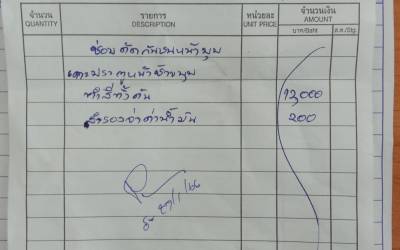 จำนวน รายการ หน่วยละ จำนวนเงิน
QUANTITY DESCRIPTION UNIT PRICE AMOUNT
บาท/Baht ส.ต./Stg.
ซ่อมตัดกันชนหน้ามุม
เคาะประตูหน้าซ้ายบุบ
ทำสีทั้งคัน 12,000
สำรองจ่ายค่าน้ำมัน 200